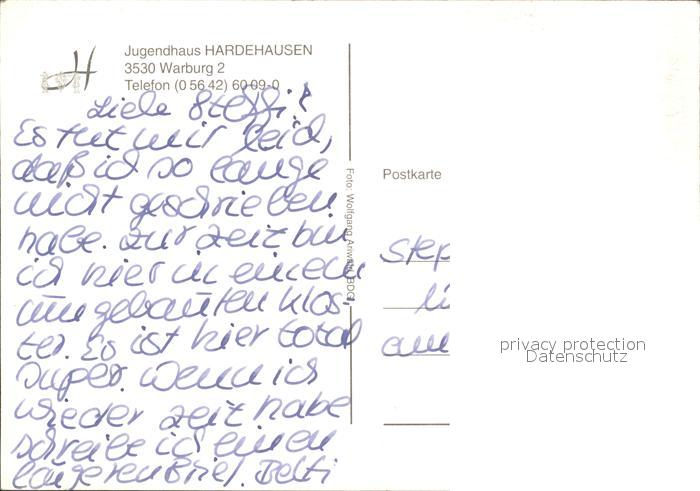 Jugendhaus HARDEHAUSEN
3530 Warburg 2
Telefon (0 56 42) 60 09-0
Liebe Steffi!
Es tut mir leid,
daß ich so lange
nicht geschrieben
habe. Zur Zeit bin
ich hier in einem
umgebauten Klos-
ter. Es ist hier total
super. Wenn ich
wieder Zeit habe
schreibe ich einen
längeren Brief.
Foto: Wolfgang
Postkarte
Step
li
am
privacy protection
Datenschutz